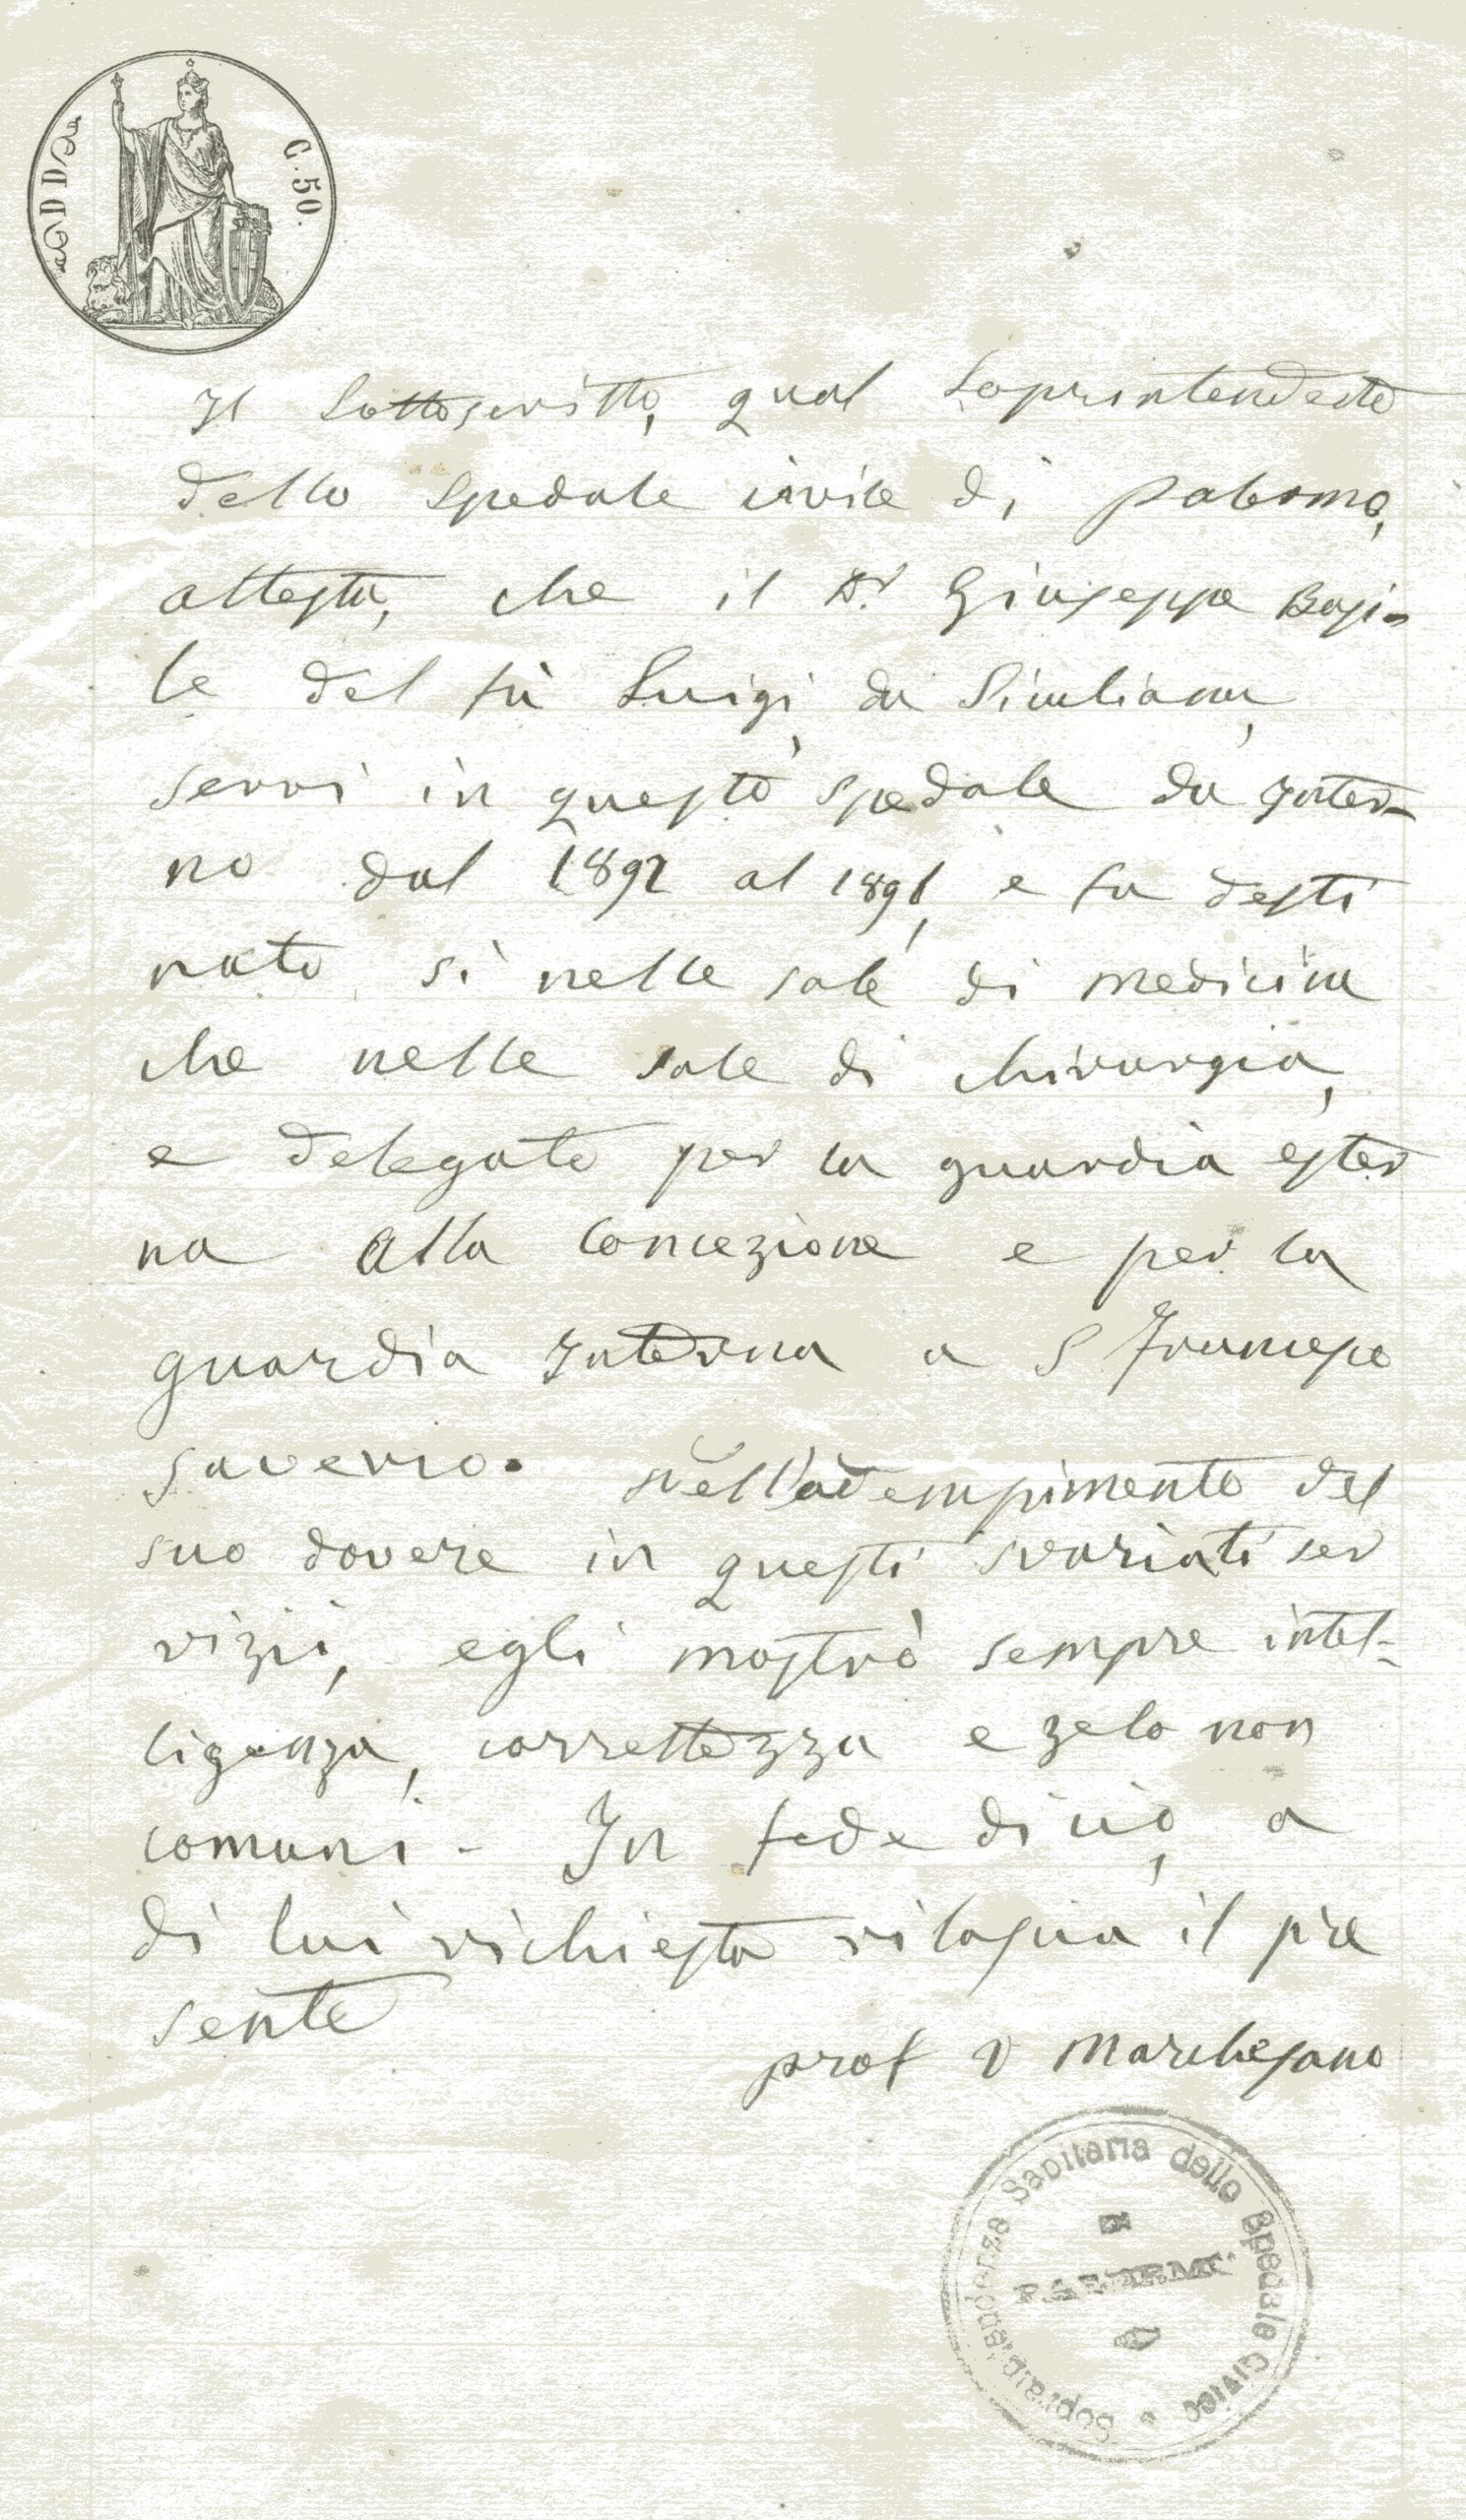 C. 50.
Il Sottoscritto, qual Soprintendente
dello spedale civile di Palermo,
attesta, che il Dr. Giuseppe Basi-
le del fù Luigi, da Siculiana,
servì in questo spedale da Inter-
no dal 1892 al 189, e fu desti
nato sì nelle sale di medicina
che nelle sale di chirurgia,
e delegato per la guardia ester
na alla Concezione e per la
guardia Interna a S Francesco
Saverio. Nell'adempimento del
suo dovere in questi svariati ser
vizii, egli mostrò sempre intel-
ligenza, correttezza e zelo non
comuni - In fede di ciò, a
di lui richiesta rilascia il pre
sente
prof V Marchesano
Soprintendenza Sanitaria dello Spedale Civico
DI
PALERMO